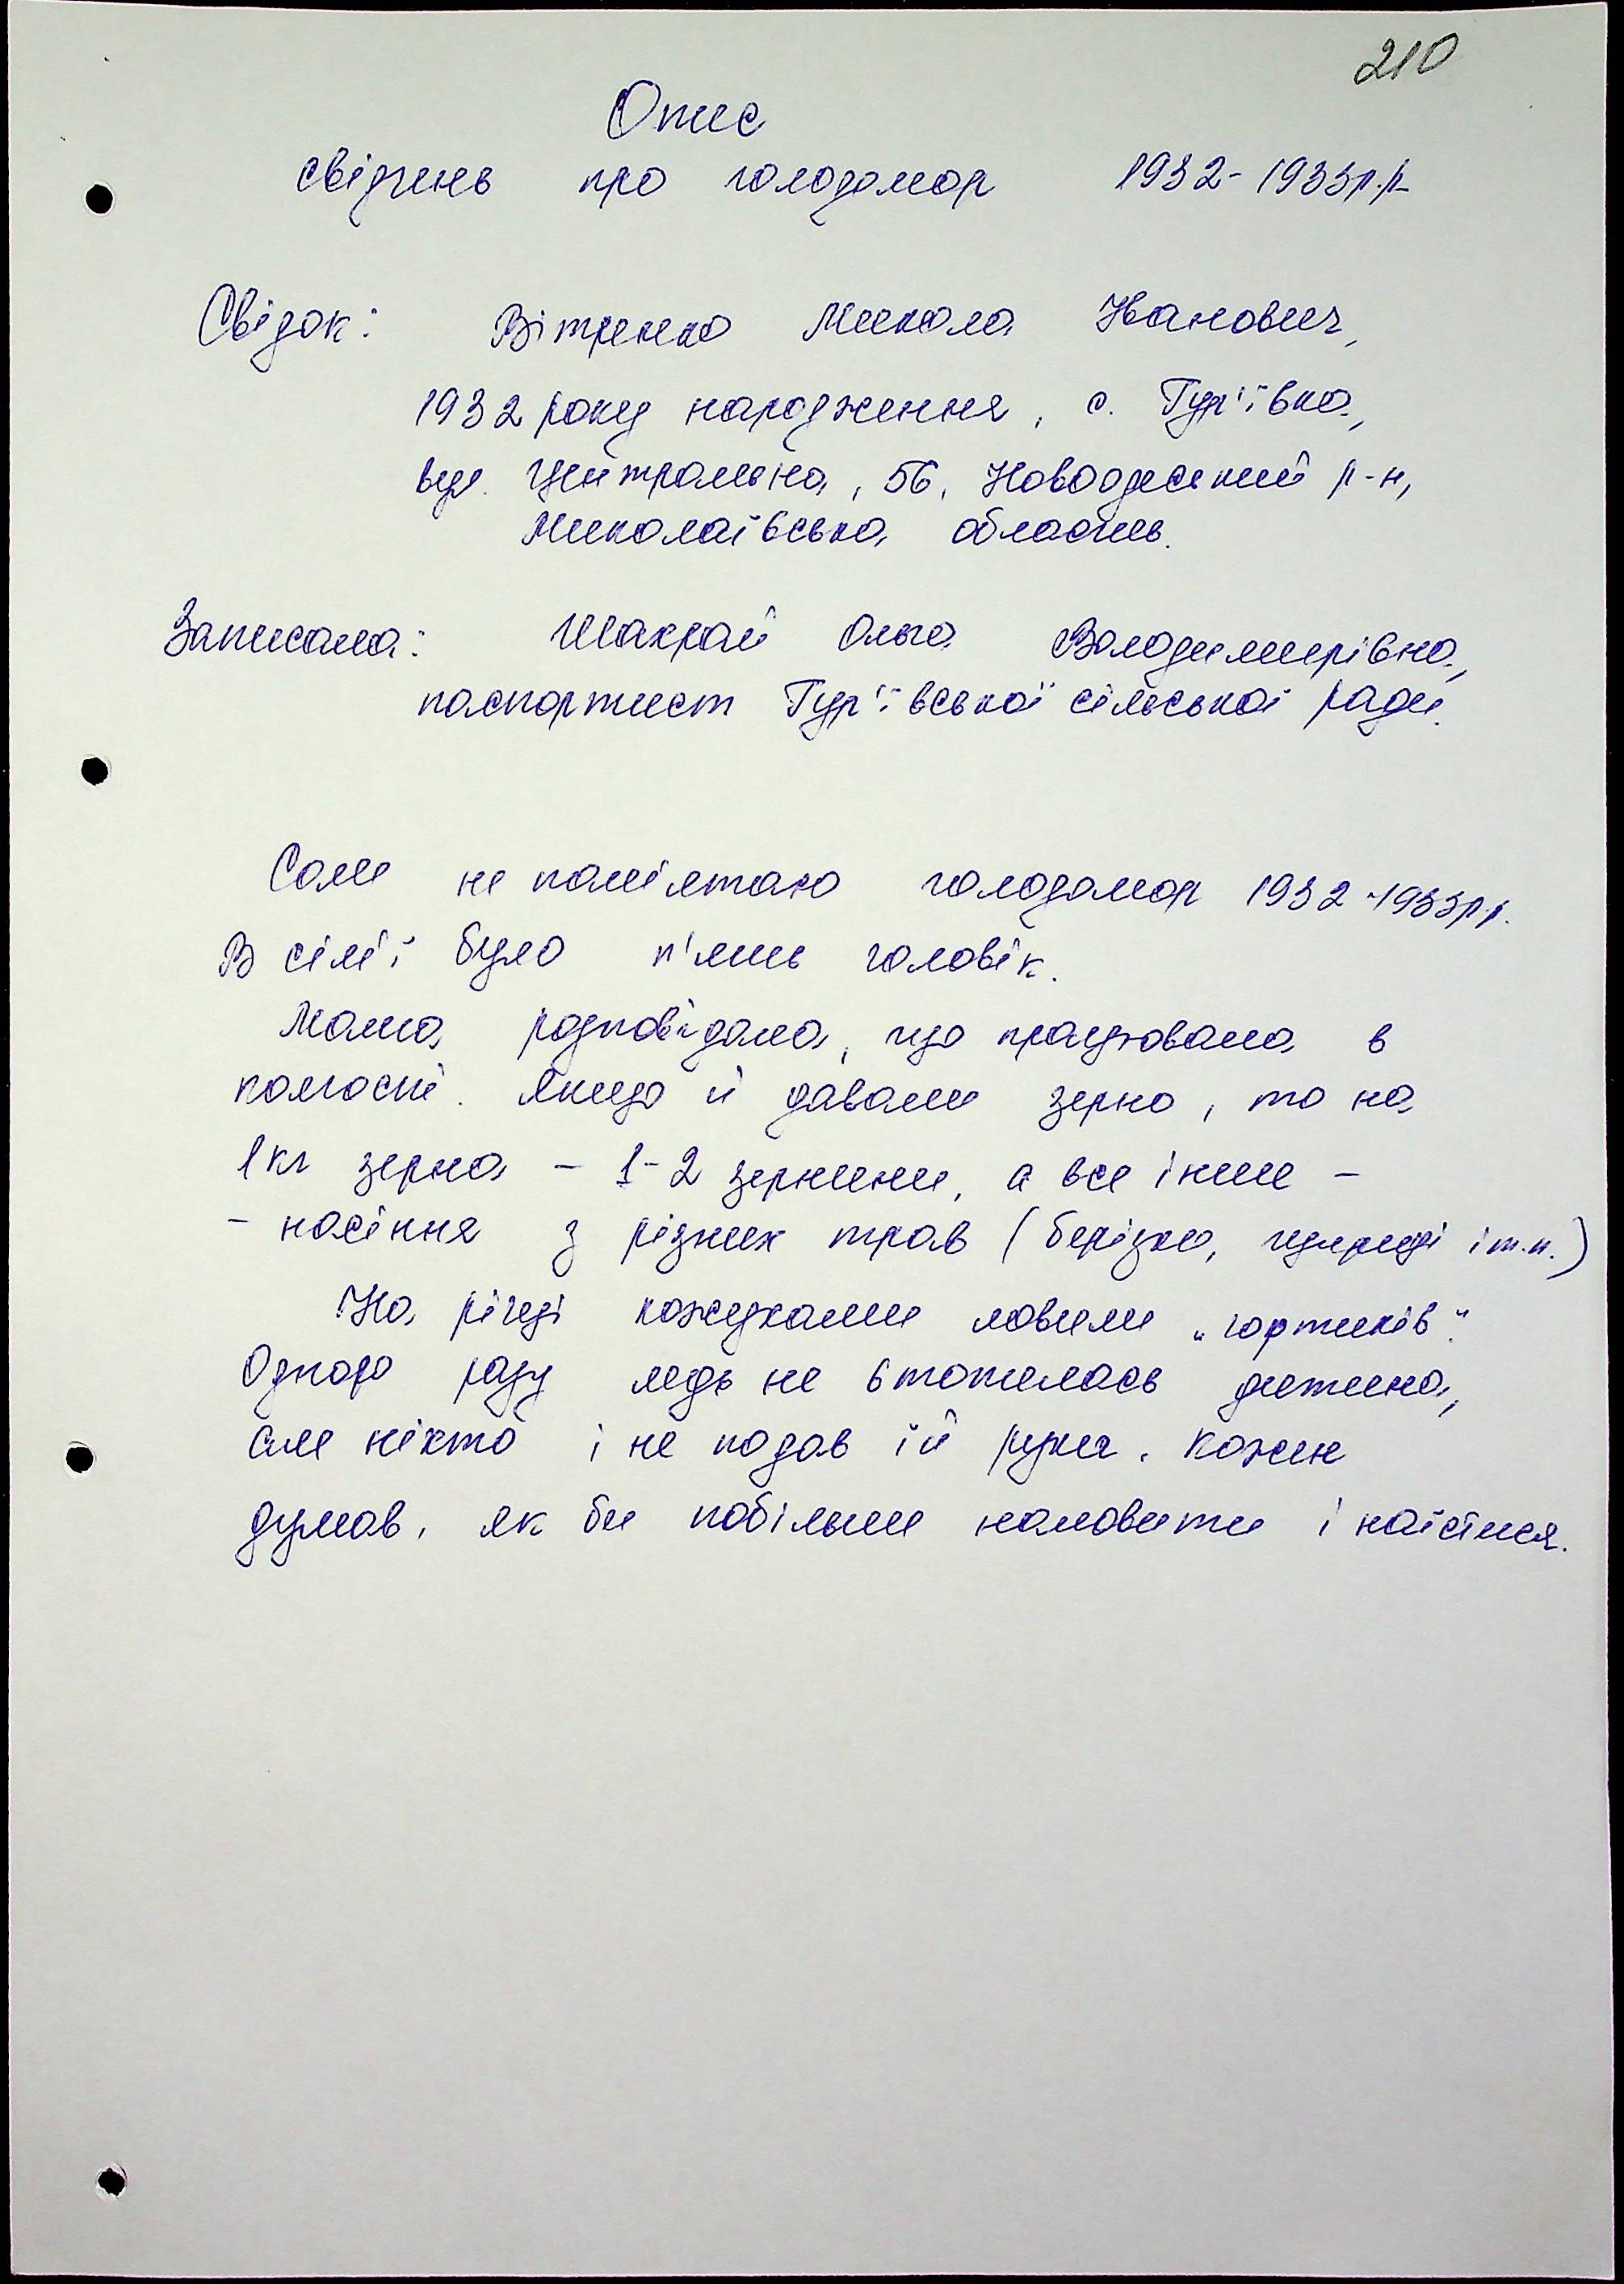 210
Опис
свідчень про голодомор 1932-1933р.р.
Свідок: Вітренко Микола Іванович,
1932 року народження, с. Гур'ївка,
вул. Центральна, 56, Новоодеський р-н,
Миколаївська область.
Записала: Шахрай Ольга Володимирівна,
паспортист Гур'ївської сільської ради.
Сам не пам'ятаю голодомор 1932-1933р.р.
В сім'ї було п'ять чоловік.
Мама розповідала, що працювала в
колгоспі. Якщо й давали зерно, то на
1кг зерна - 1-2 зернини, а все інше -
- насіння з різних трав (берізка, щириці і т.п.)
На річці кожухами ловили „чортиків".
Одного разу ледь не втопилась дитина,
але ніхто і не подав їй руки. Кожен
думав, як би побільше наловити і наїстися.